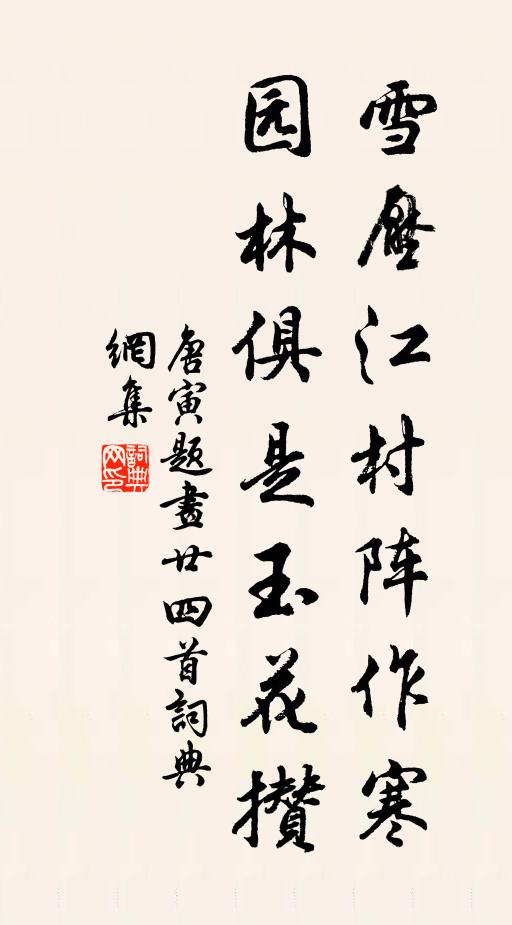 雪壓江村阵作寒
园林俱是玉花攒
唐寅题畫廿四首詞典
網集
詞典
网印